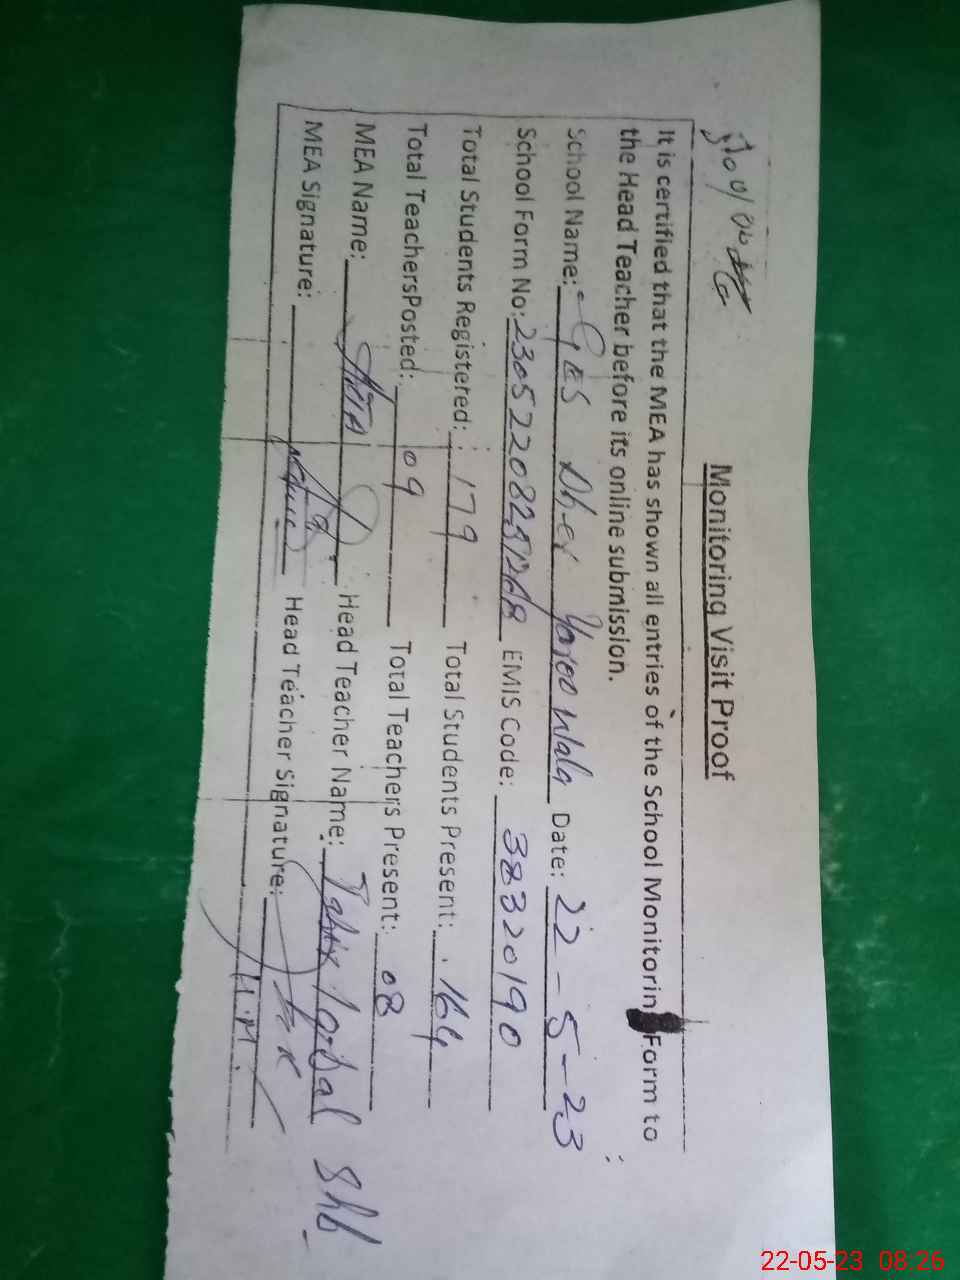 Monitoring Visit Proof
It is certified that the MEA has shown all entries of the School Monitorin Form to
the Head Teacher before its online submission.
School Name: GES Dher Date: 22-5-23
School Form No: EMIS Code: 38320190
Total Students Registered: 179 Total Students Present: 164
Total TeachersPosted: 09 Total Teachers Present: 08
MEA Name: Head Teacher Name:
MEA Signature: Head Teacher Signature:
H.M.
22-05-23 08:26